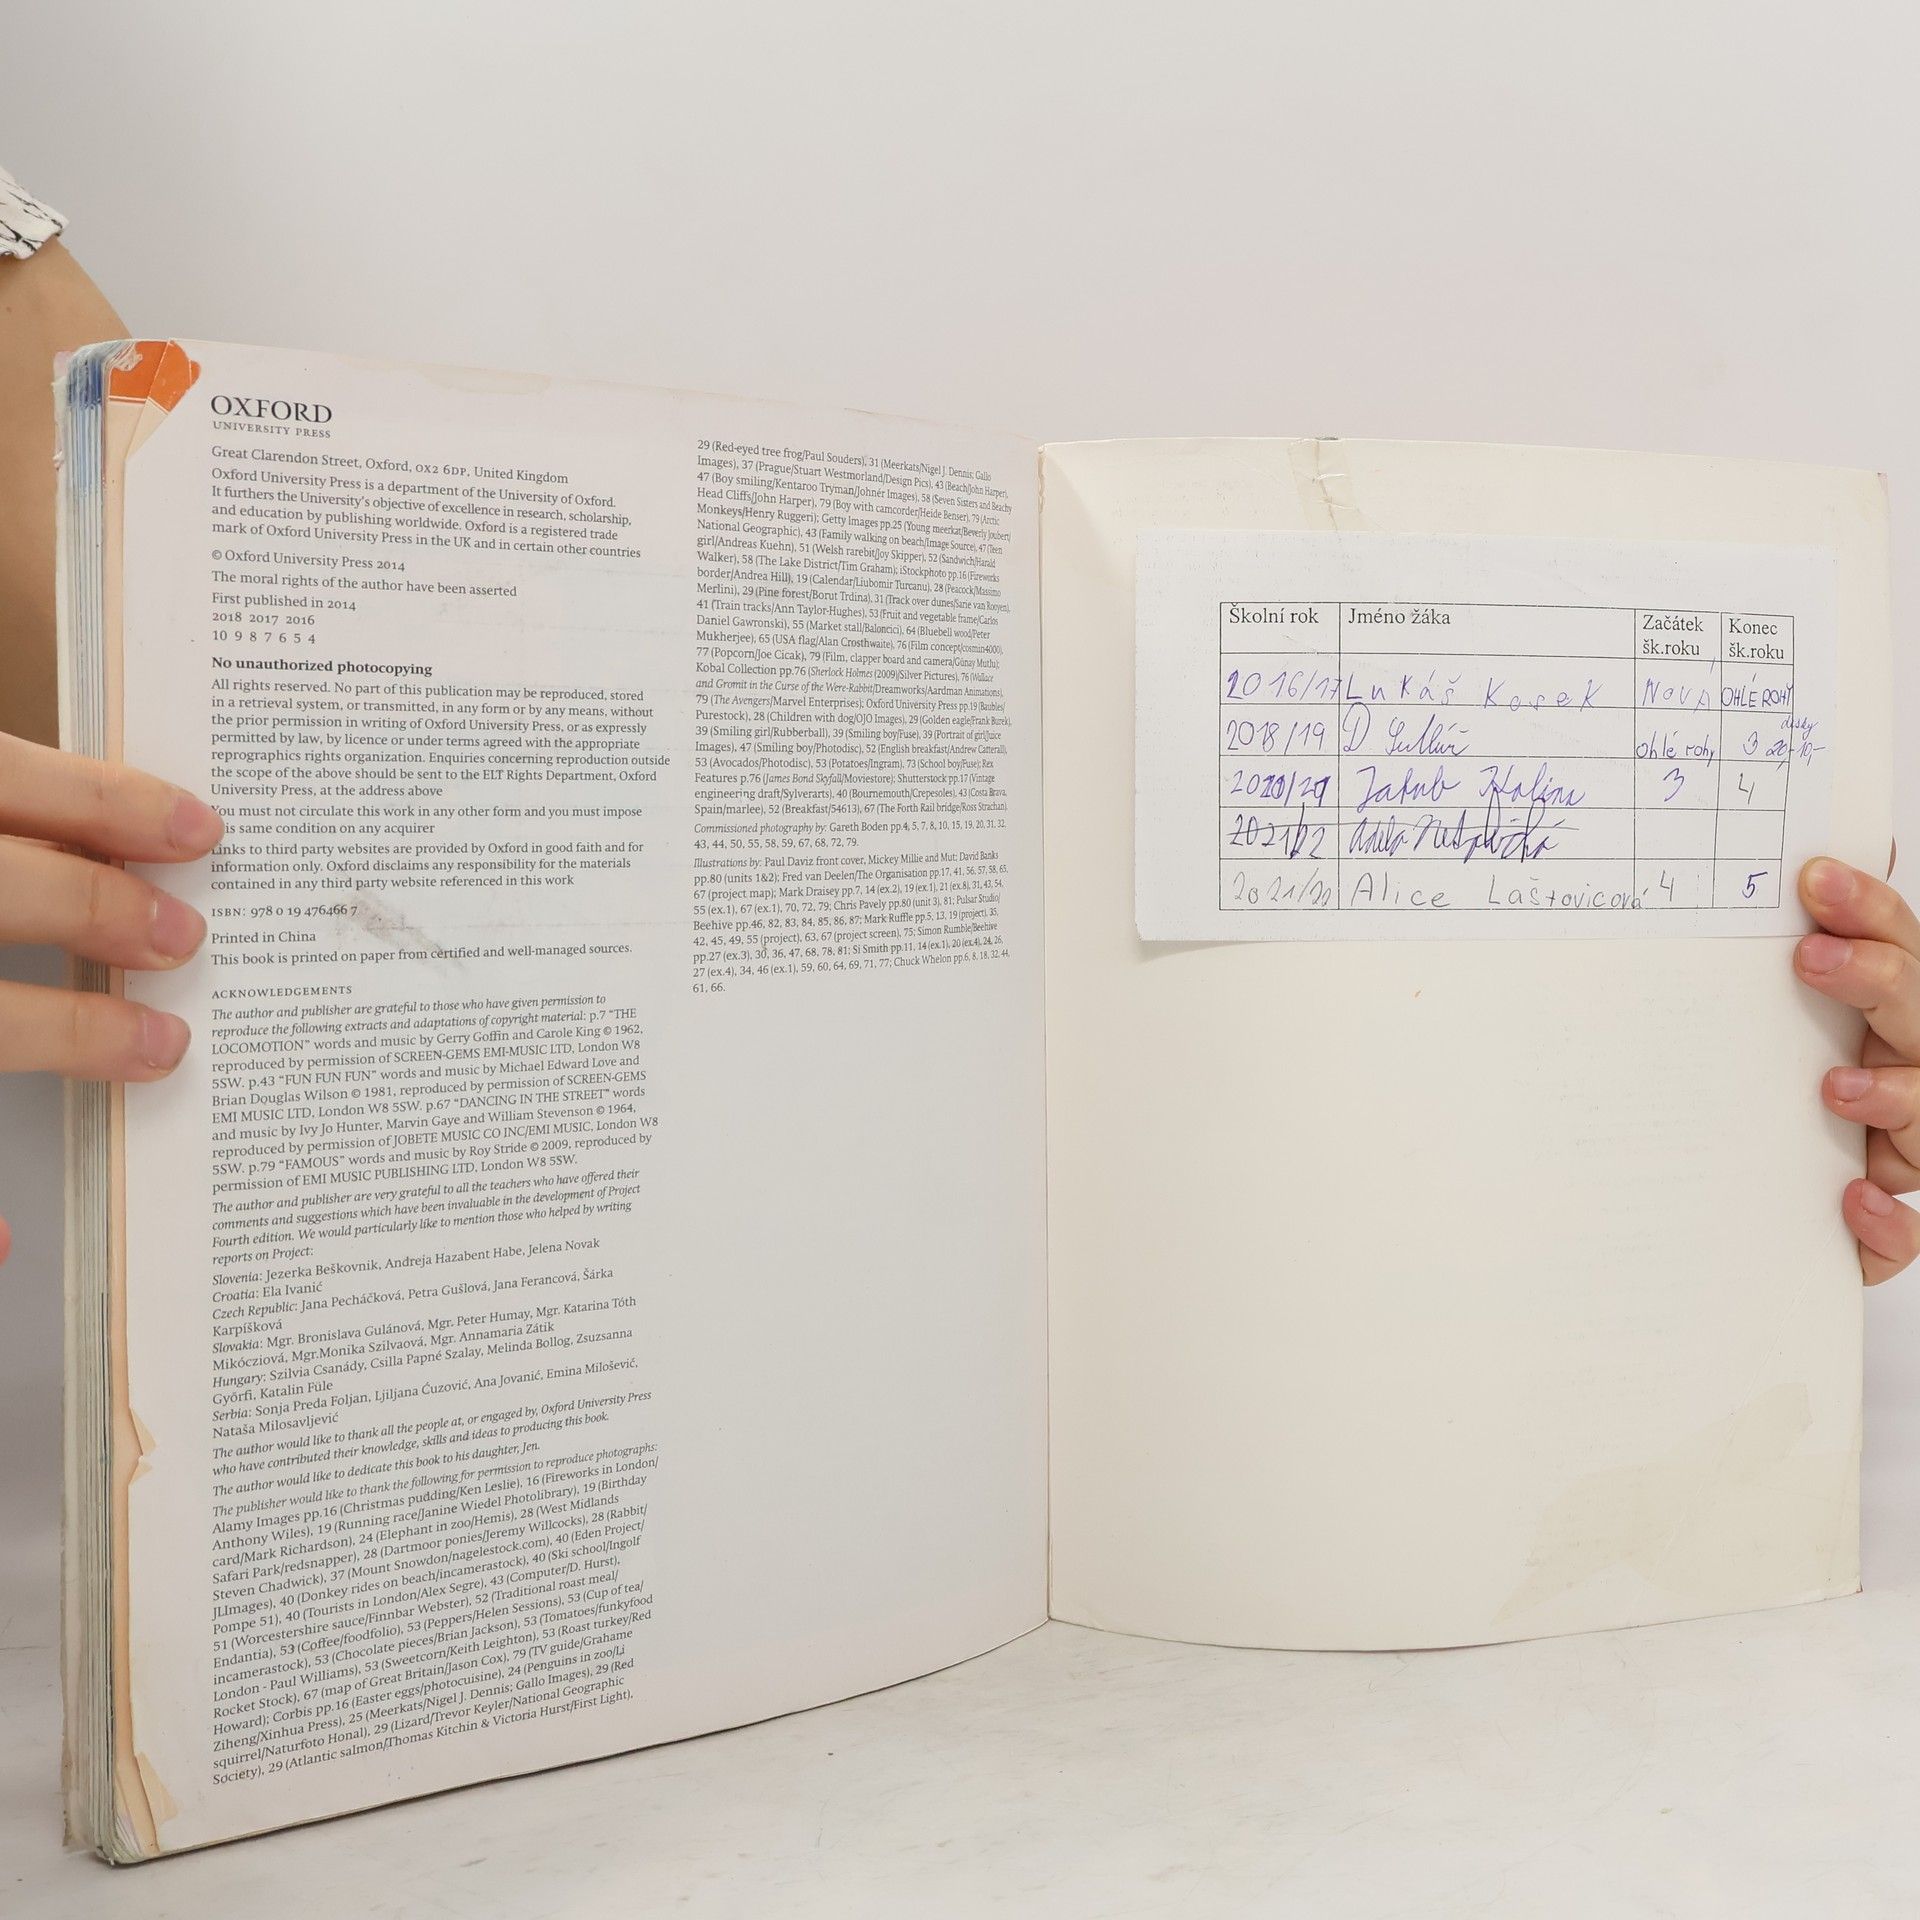 OXFORD
UNIVERSITY PRESS
Great Clarendon Street, Oxford, OX2 6DP, United Kingdom
Oxford University Press is a department of the University of Oxford.
It furthers the University's objective of excellence in research, scholarship,
and education by publishing worldwide. Oxford is a registered trade
mark of Oxford University Press in the UK and in certain other countries
© Oxford University Press 2014
The moral rights of the author have been asserted
First published in 2014
2018 2017 2016
10 9 8 7 6 5 4
No unauthorized photocopying
All rights reserved. No part of this publication may be reproduced, stored
in a retrieval system, or transmitted, in any form or by any means, without
the prior permission in writing of Oxford University Press, or as expressly
permitted by law, by licence or under terms agreed with the appropriate
reprographics rights organization. Enquiries concerning reproduction outside
the scope of the above should be sent to the ELT Rights Department, Oxford
University Press, at the address above
You must not circulate this work in any other form and you must impose
is same condition on any acquirer
Links to third party websites are provided by Oxford in good faith and for
information only. Oxford disclaims any responsibility for the materials
contained in any third party website referenced in this work
ISBN: 978 0 19 476466 7
Printed in China
This book is printed on paper from certified and well-managed sources.
ACKNOWLEDGEMENTS
The author and publisher are grateful to those who have given permission to
reproduce the following extracts and adaptations of copyright material: p.7 “THE
LOCOMOTION” words and music by Gerry Goffin and Carole King © 1962,
reproduced by permission of SCREEN-GEMS EMI-MUSIC LTD, London W8
5SW. p.43 “FUN FUN FUN” words and music by Michael Edward Love and
Brian Douglas Wilson © 1981, reproduced by permission of SCREEN-GEMS
EMI MUSIC LTD, London W8 5SW. p.67 “DANCING IN THE STREET” words
and music by Ivy Jo Hunter, Marvin Gaye and William Stevenson © 1964,
reproduced by permission of JOBETE MUSIC CO INC/EMI MUSIC, London W8
5SW. p.79 “FAMOUS” words and music by Roy Stride © 2009, reproduced by
permission of EMI MUSIC PUBLISHING LTD, London W8 5SW.
The author and publisher are very grateful to all the teachers who have offered their
comments and suggestions which have been invaluable in the development of Project
Fourth edition. We would particularly like to mention those who helped by writing
reports on Project:
Slovenia: Jezerka Beškovnik, Andreja Hazabent Habe, Jelena Novak
Croatia: Ela Ivanić
Czech Republic: Jana Pecháčková, Petra Gušlová, Jana Ferancová, Šárka
Karpíšková
Slovakia: Mgr. Bronislava Gulánová, Mgr. Peter Humay, Mgr. Katarina Tóth
Mikócziová, Mgr.Monika Szilvaová, Mgr. Annamaria Zátik
Hungary: Szilvia Csanády, Csilla Papné Szalay, Melinda Bollog, Zsuzsanna
Győrfi, Katalin Füle
Serbia: Sonja Preda Foljan, Ljiljana Ćuzović, Ana Jovanić, Emina Milošević,
Nataša Milosavljević
The author would like to thank all the people at, or engaged by, Oxford University Press
who have contributed their knowledge, skills and ideas to producing this book.
The author would like to dedicate this book to his daughter, Jen.
The publisher would like to thank the following for permission to reproduce photographs:
Alamy Images pp.16 (Christmas pudding/Ken Leslie), 16 (Fireworks in London/
Anthony Wiles), 19 (Running race/Janine Wiedel Photolibrary), 19 (Birthday
card/Mark Richardson), 24 (Elephant in zoo/Hemis), 28 (West Midlands
Safari Park/redsnapper), 28 (Dartmoor ponies/Jeremy Willcocks), 28 (Rabbit/
Steven Chadwick), 37 (Mount Snowdon/nagelestock.com), 40 (Eden Project/
JLImages), 40 (Donkey rides on beach/incamerastock), 40 (Ski school/Ingolf
Pompe 51), 40 (Tourists in London/Alex Segre), 43 (Computer/D. Hurst),
51 (Worcestershire sauce/Finnbar Webster), 52 (Traditional roast meal/
Endantia), 53 (Coffee/foodfolio), 53 (Peppers/Helen Sessions), 53 (Cup of tea/
incamerastock), 53 (Chocolate pieces/Brian Jackson), 53 (Tomatoes/funkyfood
London - Paul Williams), 53 (Sweetcorn/Keith Leighton), 53 (Roast turkey/Red
Rocket Stock), 67 (map of Great Britain/Jason Cox), 79 (TV guide/Grahame
Howard); Corbis pp.16 (Easter eggs/photocuisine), 24 (Penguins in zoo/Li
Ziheng/Xinhua Press), 25 (Meerkats/Nigel J. Dennis; Gallo Images), 29 (Red
squirrel/Naturfoto Honal), 29 (Lizard/Trevor Keyler/National Geographic
Society), 29 (Atlantic salmon/Thomas Kitchin & Victoria Hurst/First Light),
29 (Red-eyed tree frog/Paul Souders), 31 (Meerkats/Nigel J. Dennis; Gallo
Images), 37 (Prague/Stuart Westmorland/Design Pics), 43 (Beach/John Harper),
47 (Boy smiling/Kentaroo Tryman/Johnér Images), 58 (Seven Sisters and Beachy
Head Cliffs/John Harper), 79 (Boy with camcorder/Heide Benser), 79 (Arctic
Monkeys/Henry Ruggeri); Getty Images pp.25 (Young meerkat/Beverly Joubert/
National Geographic), 43 (Family walking on beach/Image Source), 47 (Teen
girl/Andreas Kuehn), 51 (Welsh rarebit/Joy Skipper), 52 (Sandwich/Harald
Walker), 58 (The Lake District/Tim Graham); iStockphoto pp.16 (Fireworks
border/Andrea Hill), 19 (Calendar/Liubomir Turcanu), 28 (Peacock/Massimo
Merlini), 29 (Pine forest/Borut Trdina), 31 (Track over dunes/Sane van Rooyen),
41 (Train tracks/Ann Taylor-Hughes), 53 (Fruit and vegetable frame/Carlos
Daniel Gawronski), 55 (Market stall/Baloncici), 64 (Bluebell wood/Peter
Mukherjee), 65 (USA flag/Alan Crosthwaite), 76 (Film concept/cosmin4000),
77 (Popcorn/Joe Cicak), 79 (Film, clapper board and camera/Günay Mutlu);
Kobal Collection pp.76 (Sherlock Holmes (2009)/Silver Pictures), 76 (Wallace
and Gromit in the Curse of the Were-Rabbit/Dreamworks/Aardman Animations),
79 (The Avengers/Marvel Enterprises); Oxford University Press pp.19 (Baubles/
Purestock), 28 (Children with dog/OJO Images), 29 (Golden eagle/Frank Burek),
39 (Smiling girl/Rubberball), 39 (Smiling boy/Fuse), 39 (Portrait of girl/Juice
Images), 47 (Smiling boy/Photodisc), 52 (English breakfast/Andrew Catterall),
53 (Avocados/Photodisc), 53 (Potatoes/Ingram), 73 (School boy/Fuse); Rex
Features p.76 (James Bond Skyfall/Moviestore); Shutterstock pp.17 (Vintage
engineering draft/Sylverarts), 40 (Bournemouth/Crepesoles), 43 (Costa Brava,
Spain/marlee), 52 (Breakfast/54613), 67 (The Forth Rail bridge/Ross Strachan)
Commissioned photography by: Gareth Boden pp.4, 5, 7, 8, 10, 15, 19, 20, 31, 32,
43, 44, 50, 55, 58, 59, 67, 68, 72, 79.
Illustrations by: Paul Daviz front cover, Mickey Millie and Mut; David Banks
pp.80 (units 1&2); Fred van Deelen/The Organisation pp.17, 41, 56, 57, 58, 65,
67 (project map); Mark Draisey pp.7, 14 (ex.2), 19 (ex.1), 21 (ex.8), 31, 43, 54,
55 (ex.1), 67 (ex.1), 70, 72, 79; Chris Pavely pp.80 (unit 3), 81; Pulsar Studio/
Beehive pp.46, 82, 83, 84, 85, 86, 87; Mark Ruffle pp.5, 13, 19 (project), 35,
42, 45, 49, 55 (project), 63, 67 (project screen), 75; Simon Rumble/Beehive
pp.27 (ex.3), 30, 36, 47, 68, 78, 81; Si Smith pp.11, 14 (ex.1), 20 (ex.4), 24, 26,
27 (ex.4), 34, 46 (ex.1), 59, 60, 64, 69, 71, 77; Chuck Whelon pp.6, 8, 18, 32, 44,
61, 66.
Školní rok Jméno žáka Začátek šk.roku Konec šk.roku
2016/17 Lukáš Kosek NOVÁ OHLÉ ROHY
2018/19 D. ohlé rohy 3 desky 20,- 10,-
2020/21 Jakub Kalina 3 4
2021/22 Adéla
2021/22 Alice Laštovicová 4 5